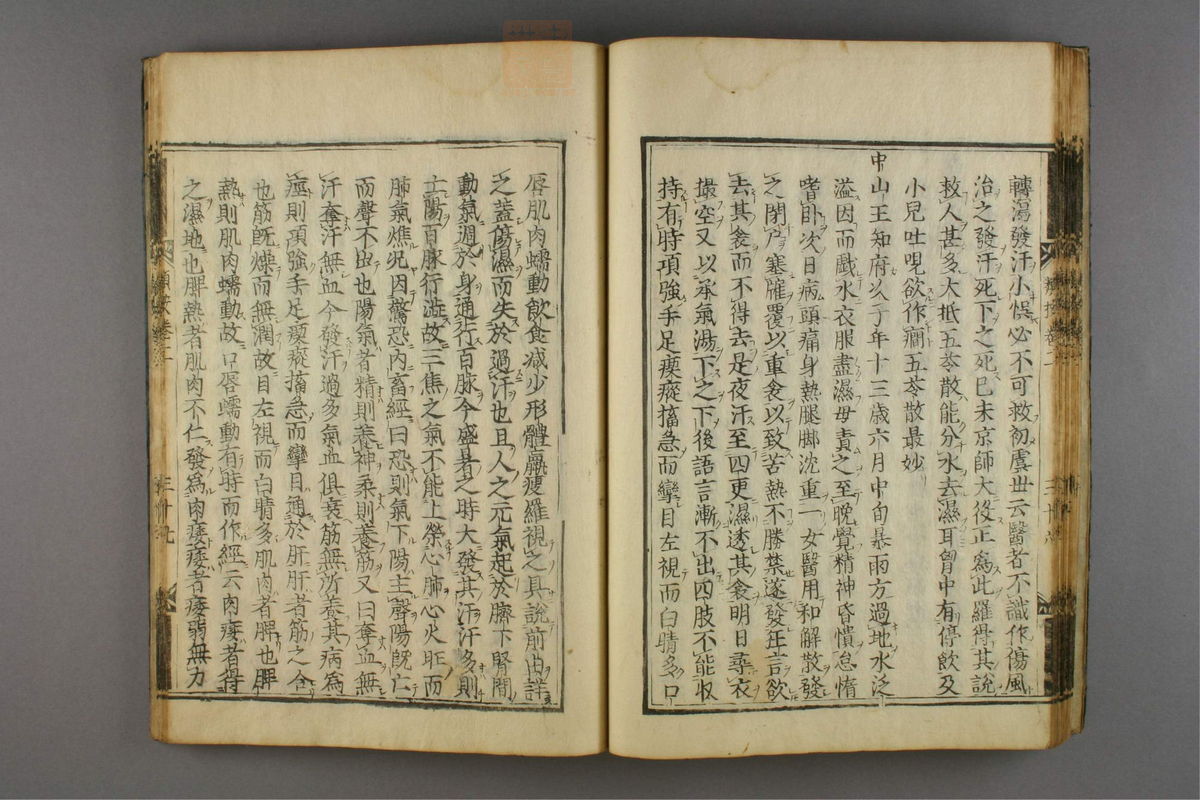 轉瀉發汗小悞必不可救初虞世云醫者不識作傷風
治之發汗死下之死已未京師大疫正爲此羅得其說
救人甚多大抵五苓散能分水去濕耳胷中有停飲及
小兒吐哯欲作癎五苓散最妙
中山王知府次子年十三歲六月中旬暴雨方過地水泛
溢因而戲水衣服盡濕母責之至晚覺精神昏憒怠惰
嗜卧次日病頭痛身熱腿脚沈重一女醫用和解散發
之閉戶塞牖覆以重衾以致苦熱不勝禁遂發狂言欲
去其衾而不得去是夜汗至四更濕透其衾明日尋衣
撮空又以承氣湯下之下後語言漸不出四肢不能收
持有時項強手足瘈瘲搐急而攣目左視而白睛多口
唇肌肉蠕動飲食减少形體羸瘦羅視之具說前由詳
之蓋傷濕而失於過汗也且人之元氣起於臍下腎間
動氣週於身通行百脉今盛暑之時大發其汗汗多則
亡陽百脉行澁故三焦之氣不能上榮心肺心火旺而
肺氣燋况因驚恐內畜經曰恐則氣下陽主聲陽既亡
而聲不出也陽氣者精則養神柔則養筋又曰奪血無
汗奪汗無血今發汗過多氣血俱衰筋無所養其病爲
痙則項強手足瘈瘲搐急而攣目通於肝肝者筋之合
也筋既燥而無潤故目左視而白睛多肌肉者脾也脾
熱則肌肉蠕動故口唇蠕動有時而作經云肉痿者得
之濕地也脾熱者肌肉不仁發爲肉痿痿者痿弱無力